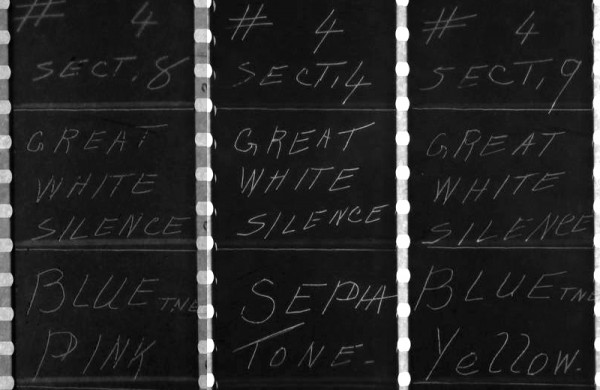 # 4
SECT. 8
GREAT
WHITE
SILENCE
BLUE TNE
PINK
# 4
SECT. 4
GREAT
WHITE
SILENCE
SEPIA
TONE-
# 4
SECT. 9
GREAT
WHITE
SILENCE
BLUE TNE
Yellow.